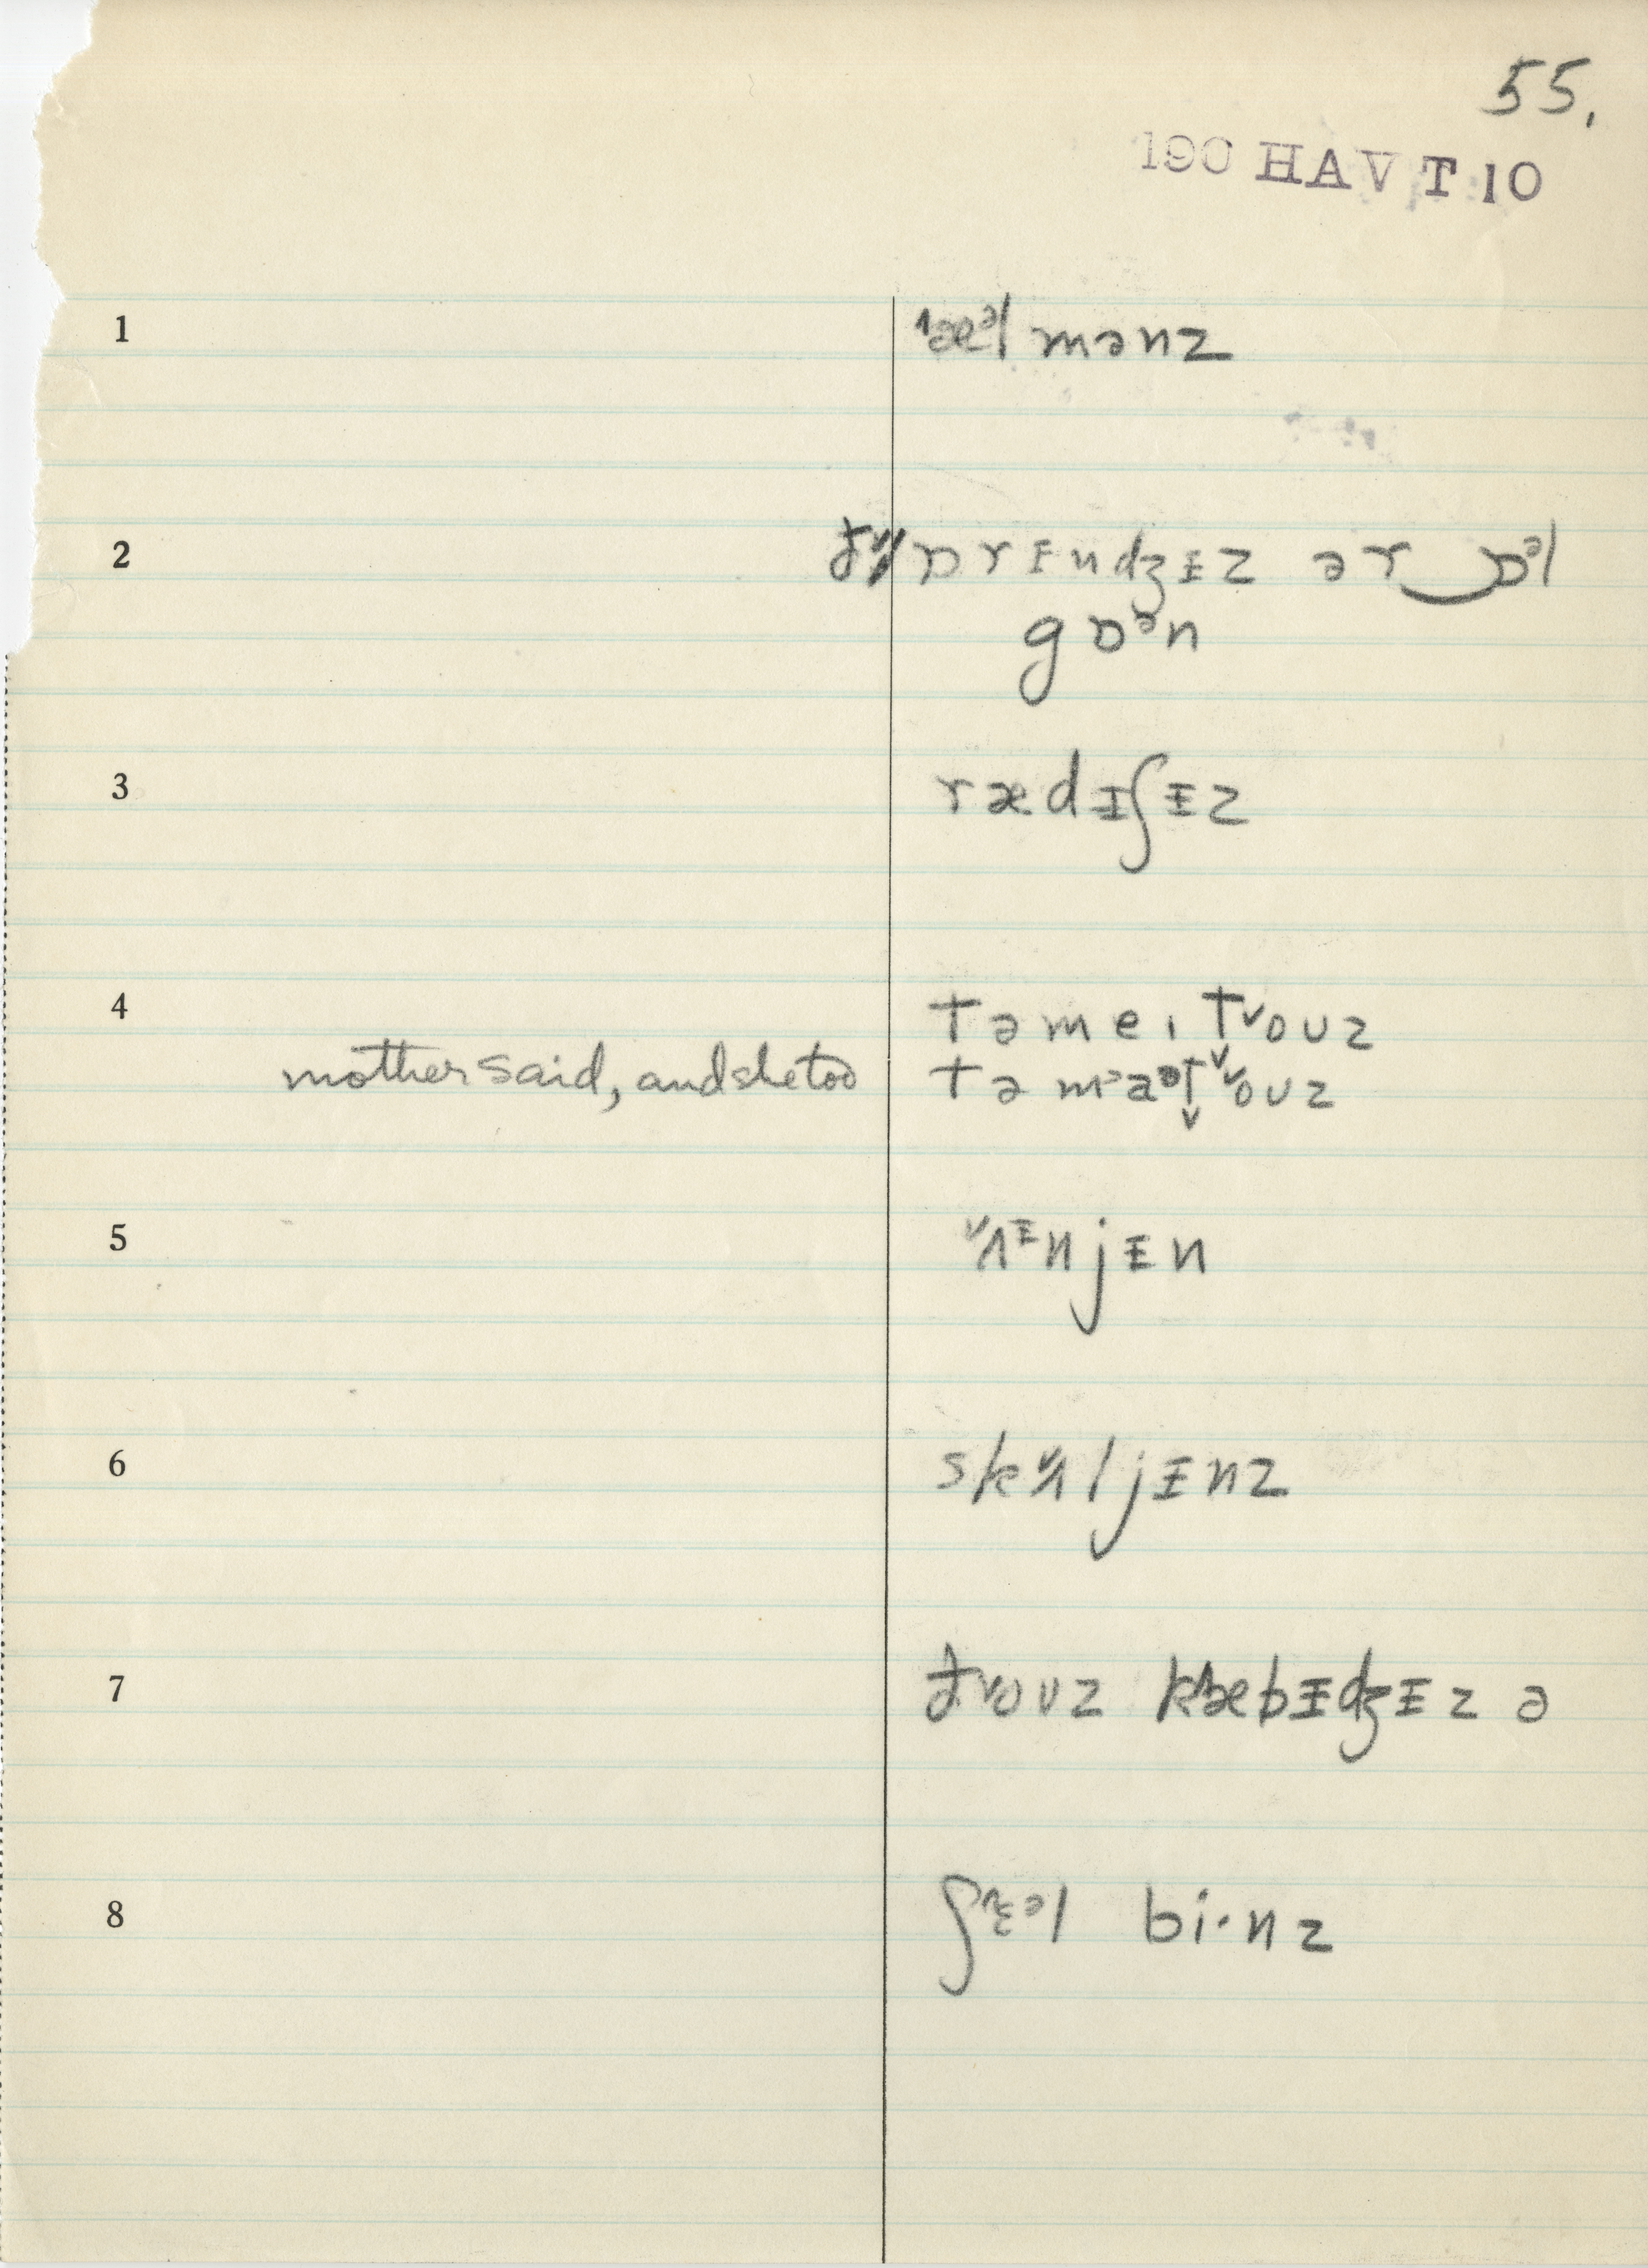 55.
190 HAV T 10
1 ˄æᵊl mənz
2 ðɒrɪndʒɪz ər‿ɒᵊl
gɒᵊn
3 rædᵻʃᵻz
4 təmeɪt˅oʊz
mother said, and she too təmaᵊt˅oʊz
5 ˅ʌᵻnjᵻn
6 sk˅ʌljᵻnz
7 ð˅oʊz kæbᵻdʒᵻz ə
8 ʃɛᵊl bi·nz